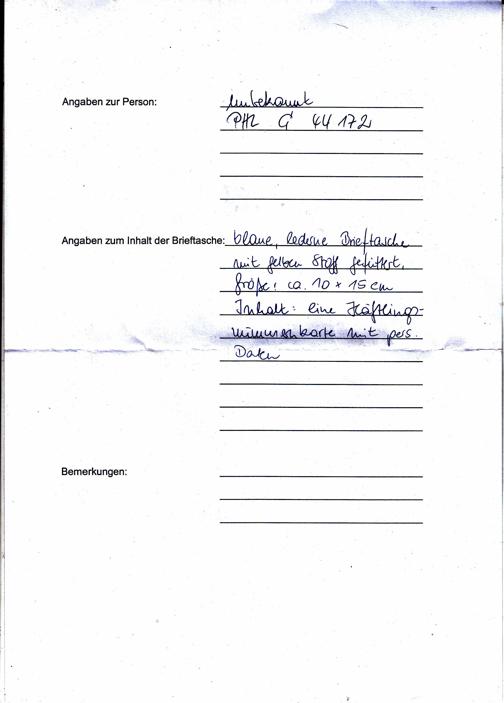 Angaben zur Person: Unbekannt
PHL G 44 172
Angaben zum Inhalt der Brieftasche: blaue, lederne Brieftasche
mit gelben Stoff gefüttert.
Größe: ca. 10 x 15 cm
Inhalt: eine Häftlings-
nummernkarte mit pers.
Daten
Bemerkungen: